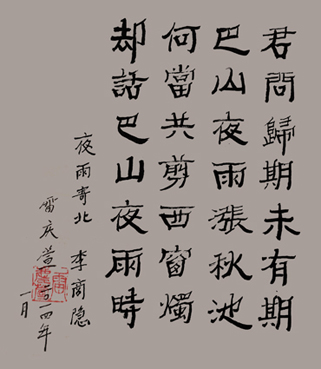 君問歸期未有期
巴山夜雨漲秋池
何當共剪西窗燭
却話巴山夜雨時
夜雨寄北 李商隐
雷庆萱
年
一月